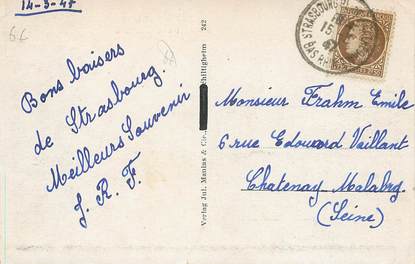 14-3-47
Bons baisers
de Strasbourg.
Meilleurs Souvenir
J. R. F.
242
Schiltigheim
Verlag Jul. Manias & Cie.,
STRASBOURG
15
47
BAS RHIN
Monsieur Frahm Emile
6 rue Edouard Vaillant
Chatenay Malabry
(Seine)